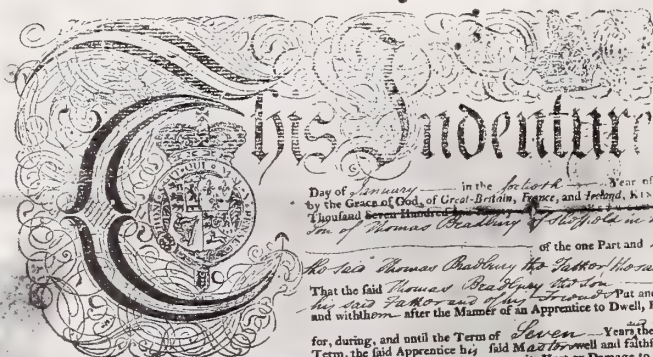 This Indenture
Day of January in the fortieth Year of
by the Grace of God, of Great-Britain, France, and Ireland, Ki
Thousand Seven Hundred
Son of Thomas Bradbury of Sheffield in
of the one Part and
the said Thomas Bradbury the Father
That the said Thomas Bradbury the son
his said Father and of his Friends Put and
and with them after the Manner of an Apprentice to Dwell,
for, during, and until the Term of Seven Years the
Term, the said Apprentice his said Masters well and faithf
or Damage to